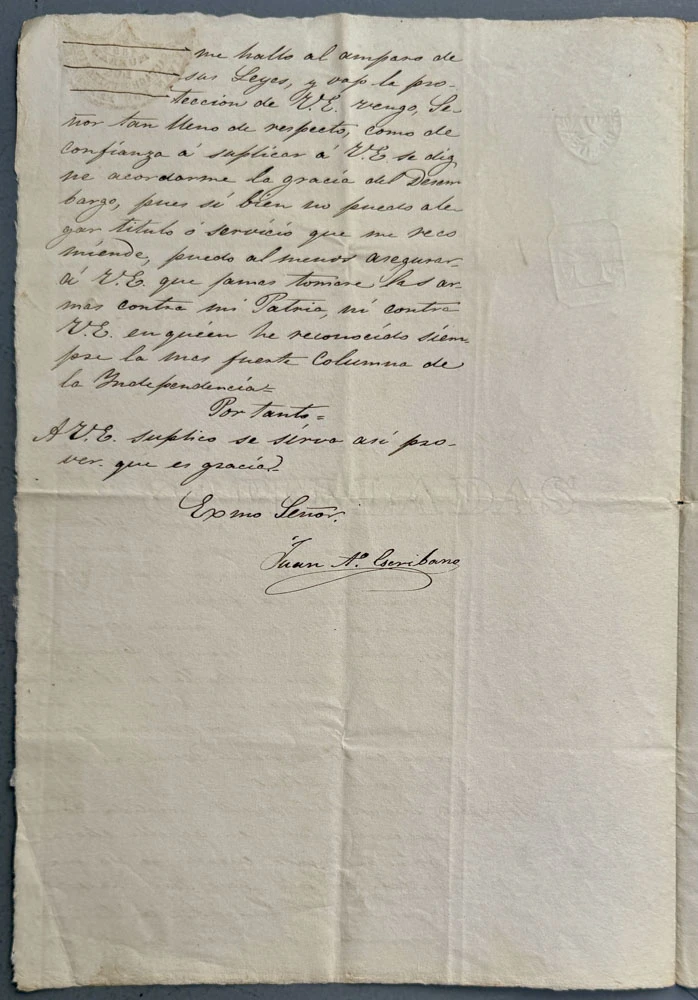 me hallo al amparo de
sus Leyes, y vajo la pro-
teccion de V.E. vengo, Se-
ñor tan lleno de respecto, como de
confianza á suplicar á V.E. se dig
ne acordarme la gracia del Desem
bargo, pues si bien no puedo ale-
gar titulo ó servicio que me reco
miende, puedo al menos asegurar-
á V.E. que jamas tomaré las ar-
mas contra mi Patria, ni contra
V.E. en quien he reconocido siem-
pre la mas fuerte Columna de
la Independencia=
Por tanto=
A V.E. suplico se sirva asi pro-
ver. que es gracia
Exmo Señor.
Juan A.º Escribano